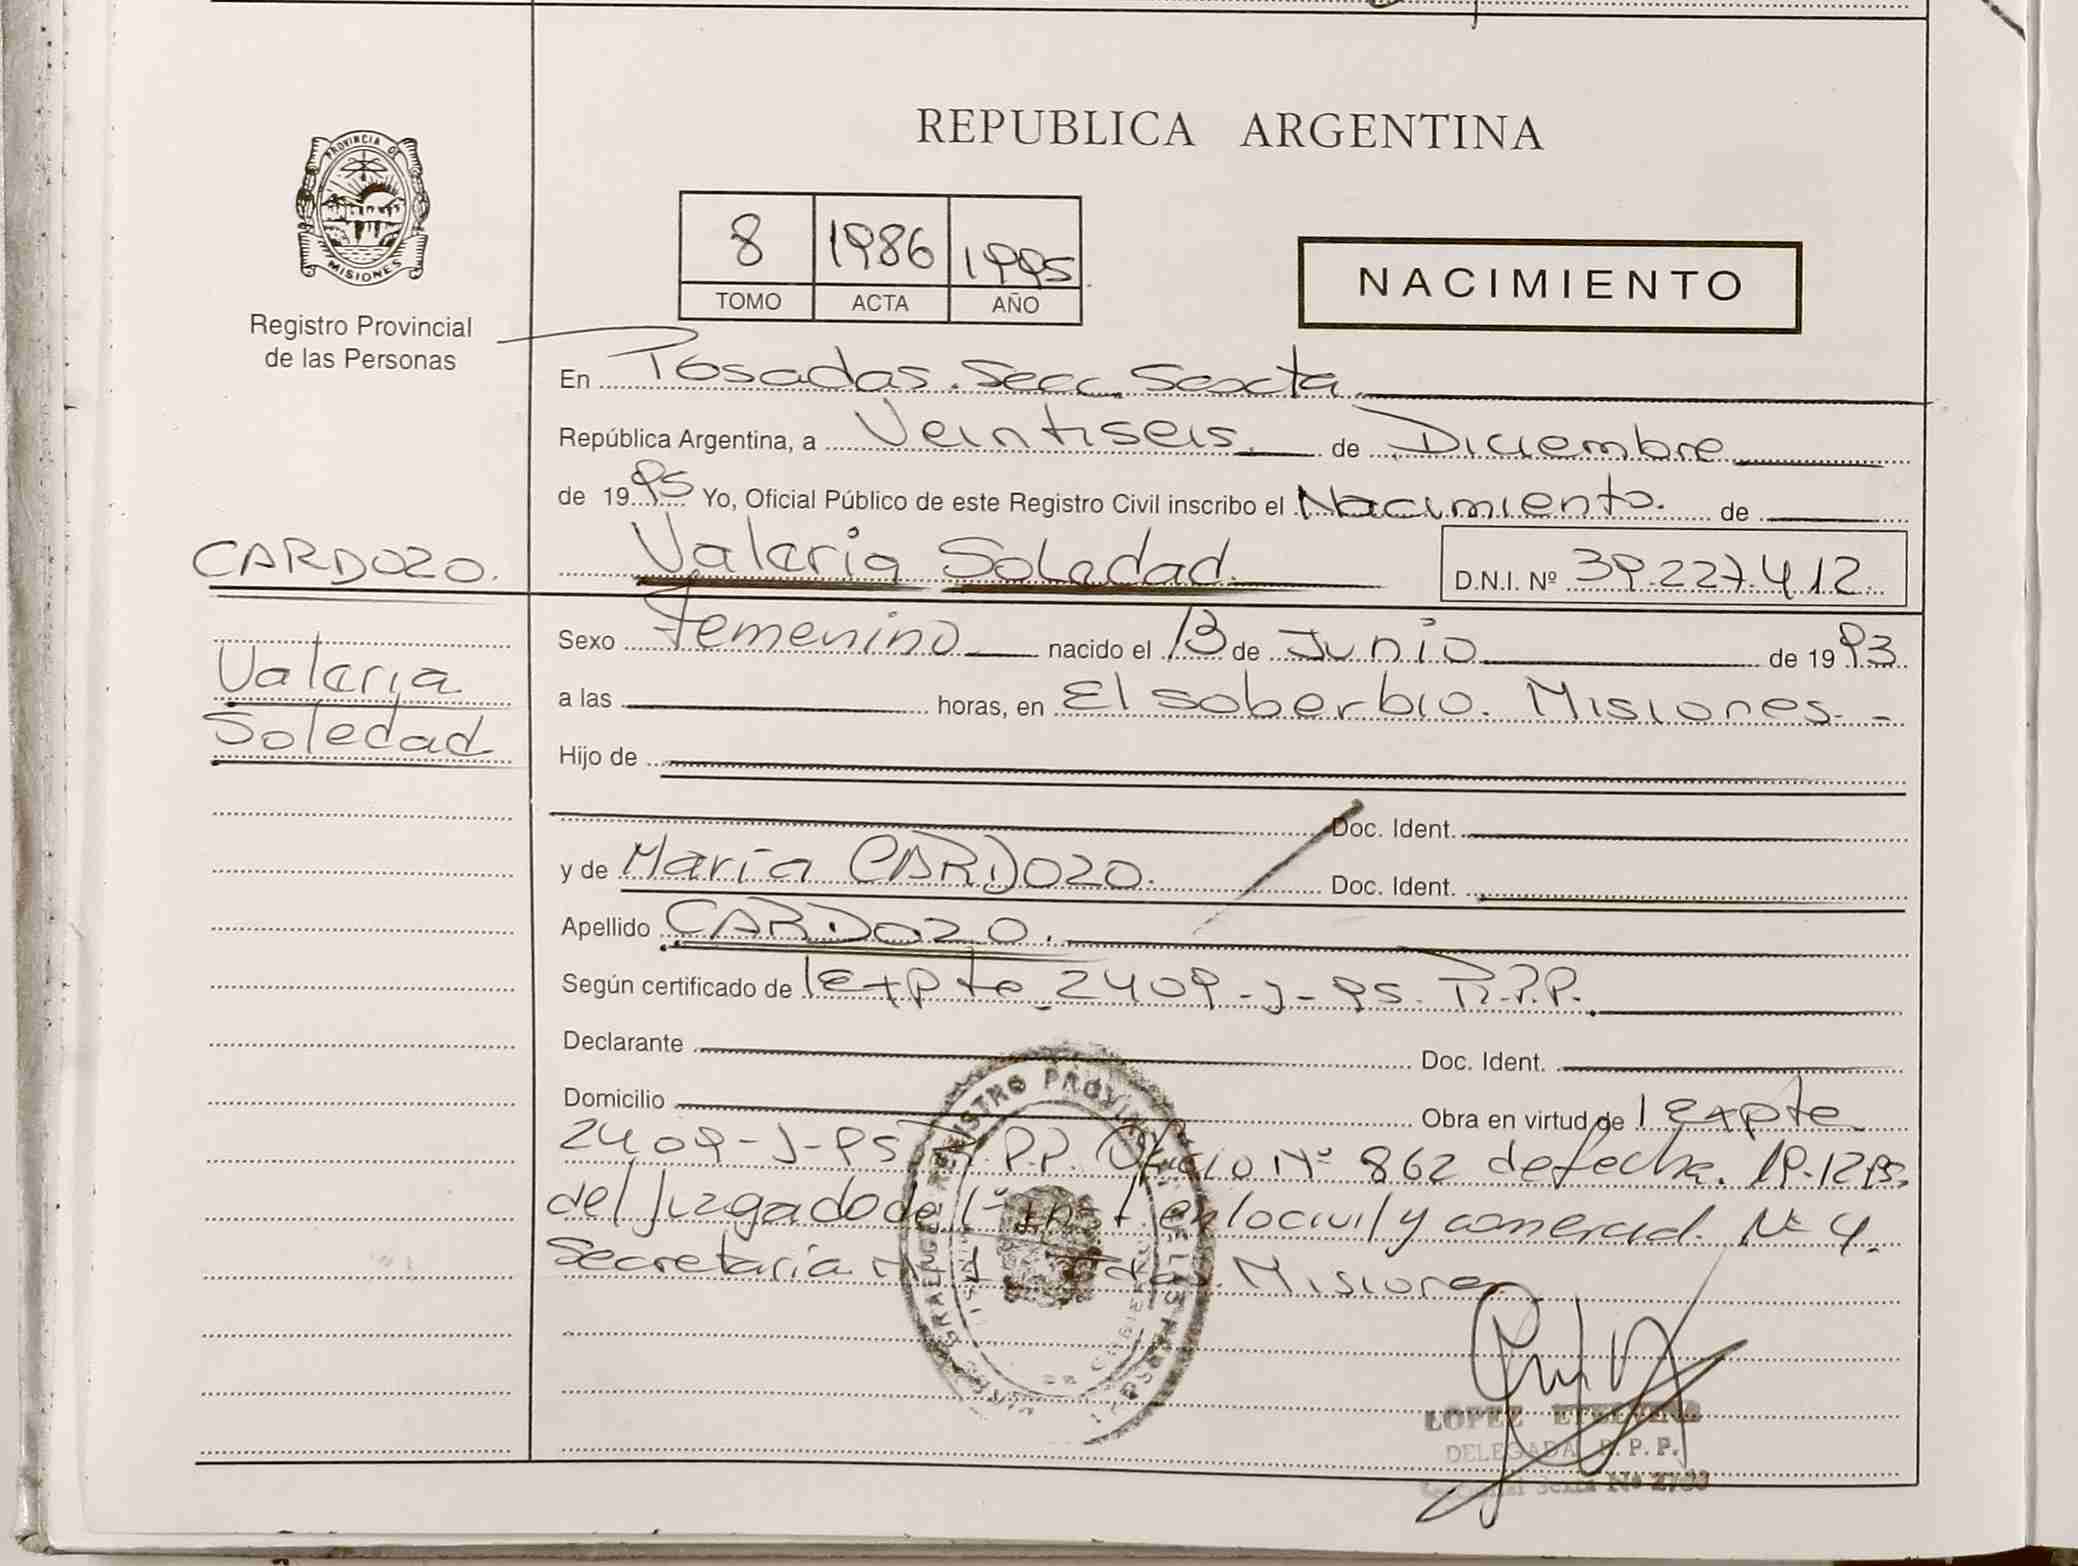 REPUBLICA ARGENTINA
PROVINCIA DE
MISIONES
Registro Provincial
de las Personas
8 1986 1995
TOMO ACTA AÑO
NACIMIENTO
En Posadas. Secc. Sexta
República Argentina, a Veintiseis. de Diciembre
de 1995 Yo, Oficial Público de este Registro Civil inscribo el Nacimiento. de
CARDOZO.
Valeria Soledad D.N.I. Nº 39.227.412
Valeria
Soledad
Sexo Femenino nacido el 13 de Junio de 1993
a las horas, en El soberbio. Misiones.-
Hijo de
Doc. Ident.
y de María CARDOZO. Doc. Ident.
Apellido CARDOZO.
Según certificado de Expte 2409-J-95. R.P.P.
Declarante Doc. Ident.
Domicilio Obra en virtud de Expte
2409-J-95 R.P.P. Oficio Nº 862 de fecha. 19.12.95.
del Juzgado de 1º Inst. en lo civil y comercial. Nº 4.
Secretaría Nº 1 Misiones
REGISTRO PROVINCIAL DE LAS PERSONAS
LOPEZ
DELEGADA R. P. P.
Sexta Nº